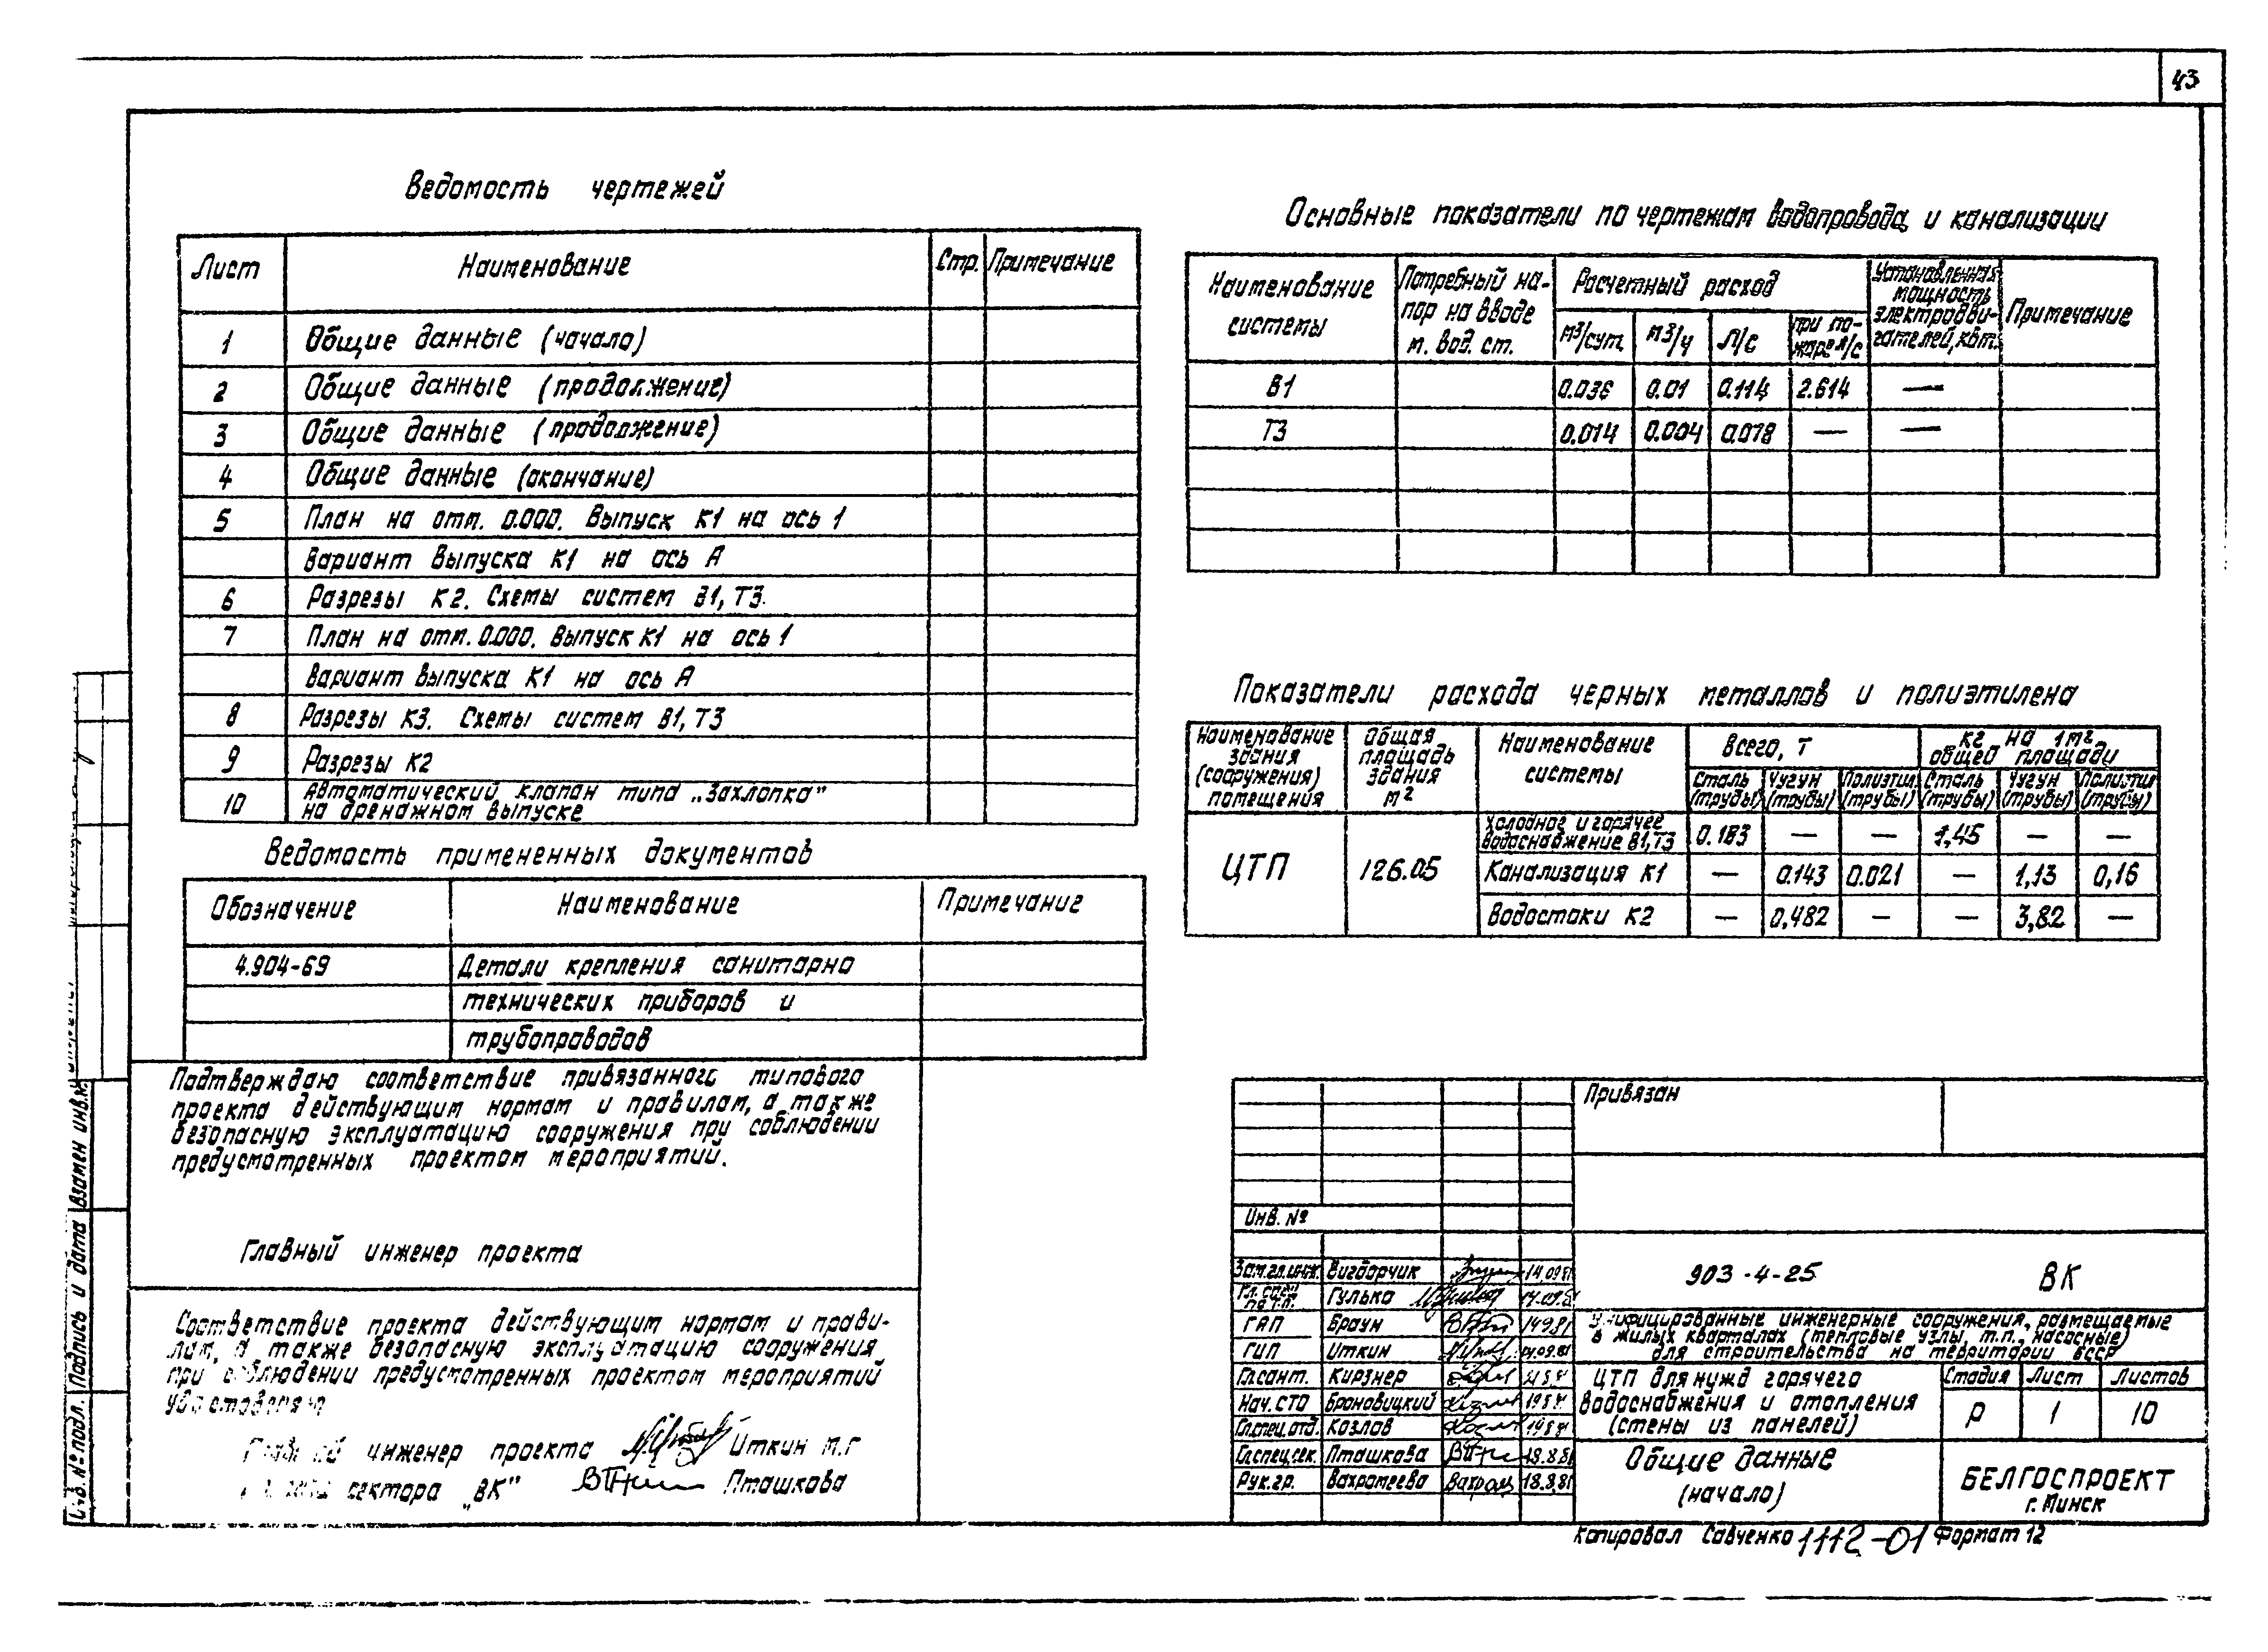 43
Ведомость чертежей
Лист Наименование Стр. Примечание
1 Общие данные (начало)
2 Общие данные (продолжение)
3 Общие данные (продолжение)
4 Общие данные (окончание)
5 План на отм. 0.000. Выпуск К1 на ось 1
Вариант выпуска К1 на ось А
6 Разрезы К2. Схемы систем В1, Т3.
7 План на отм. 0.000. Выпуск К1 на ось 1
Вариант выпуска К1 на ось А
8 Разрезы К3. Схемы систем В1, Т3
9 Разрезы К2
10 Автоматический клапан типа „Захлопка"
на дренажном выпуске
Ведомость примененных документов
Обозначение Наименование Примечание
4.904-69 Детали крепления санитарно
технических приборов и
трубопроводов
Подтверждаю соответствие привязанного типового
проекта действующим нормам и правилам, а также
безопасную эксплуатацию сооружения при соблюдении
предусмотренных проектом мероприятий.
Главный инженер проекта
Соответствие проекта действующим нормам и прави-
лам, а также безопасную эксплуатацию сооружения
при соблюдении предусмотренных проектом мероприятий
удостоверяю
Главный инженер проекта Иткин М.Г
сектора „ВК" Пташкова
Основные показатели по чертежам водопровода и канализации
Наименование системы
Потребный на-
пор на вводе
м. вод. ст.
Расчетный расход
м3/сут. м3/ч л/с при по-
жаре л/с
Установленная
мощность
электродви-
гателей, квт.
Примечание
В1 0.036 0.01 0.114 2.614 —
Т3 0.014 0.004 0.078 — —
Показатели расхода черных металлов и полиэтилена
Наименование
здания
(сооружения)
помещения
Общая
площадь
здания
м2
Наименование
системы
Всего, т
кг на 1м2
общей площади
Сталь (трубы) Чугун (трубы) Полиэтил. (трубы) Сталь (трубы) Чугун (трубы) Полиэтил (трубы)
ЦТП 126.05
Холодное и горячее
водоснабжение В1, Т3 0.183 — — 1,45 — —
Канализация К1 — 0.143 0.021 — 1,13 0,16
Водостоки К2 — 0,482 — — 3,82 —
Привязан
Инв. №
Зам.гл.инж. Вигдорчик 14.09.81
Гл. спец.
по т.п. Гулько 14.09.81
ГАП Браун 14.9.81
ГИП Иткин 14.09.81
Гл.сант. Кирзнер
Нач. СТО Броновицкий
Гл.спец.отд. Козлов
Гл.спец.сек. Пташкова 18.8.81
Рук.гр. Вахромеева 18.8.81
903-4-25 ВК
Унифицированные инженерные сооружения, размещаемые
в жилых кварталах (тепловые узлы, т.п., насосные)
для строительства на территории БССР
ЦТП для нужд горячего
водоснабжения и отопления
(стены из панелей)
Стадия Лист Листов
Р 1 10
Общие данные
(начало)
БЕЛГОСПРОЕКТ
г. Минск
Копировал Савченко 1112-01 Формат 12
Взамен инв.№
Подпись и дата
Инв. № подл.